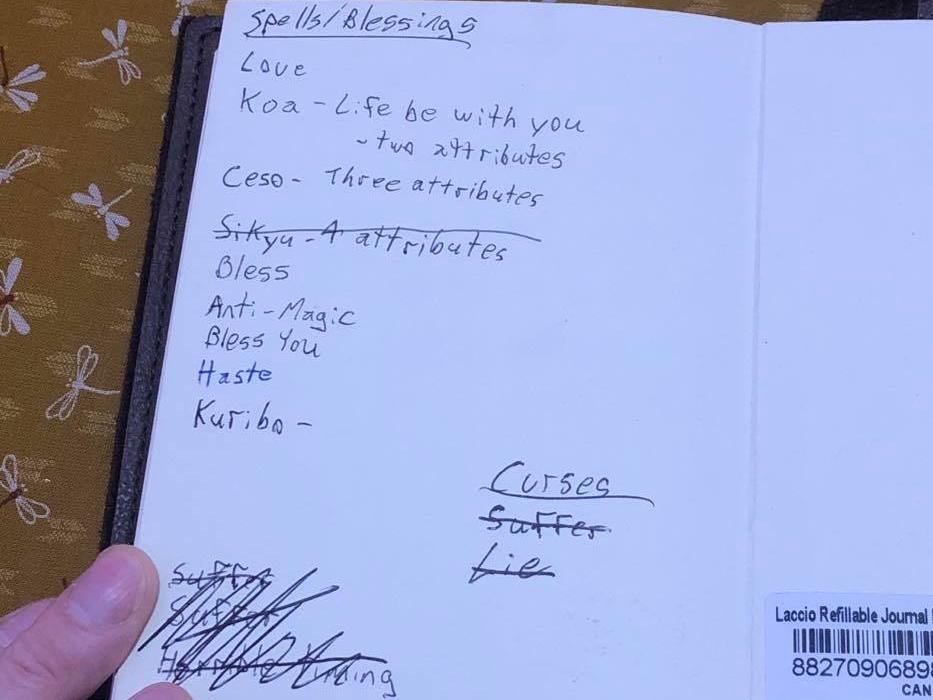 Spells/Blessings
Love
Koa - Life be with you
- two attributes
Ceso - Three attributes
Sikyu - 4 attributes
Bless
Anti-Magic
Bless You
Haste
Kuribo -
Curses
Suffer
Lie
Suffer
Suffer
Laccio Refillable Journal
8827090689
CAN